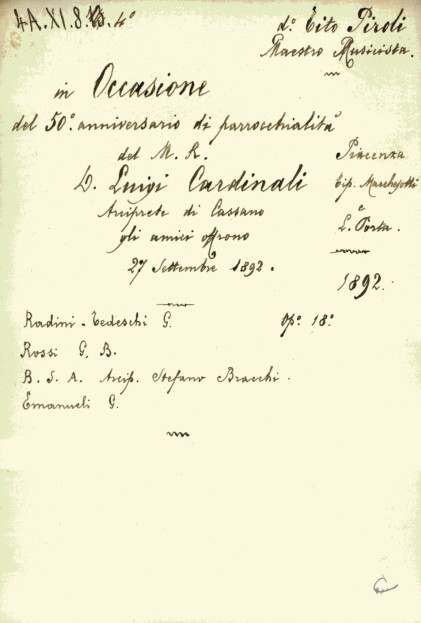 4A.XI.8. 4º
dº Tito Piroli
Maestro Musicista.
in Occasione
del 50º anniversario di parrocchialità
del M. R.
D. Luigi Cardinali
Arciprete di Cassano
gli amici offrono
27 Settembre 1892.
Piacenza
Tip. Marchesotti
e
L. Porta.
1892.
Radini-Tedeschi G. Opº 18º
Rossi G. B.
B. S. A. Arcip. Stefano Bracchi.
Emanueli G.